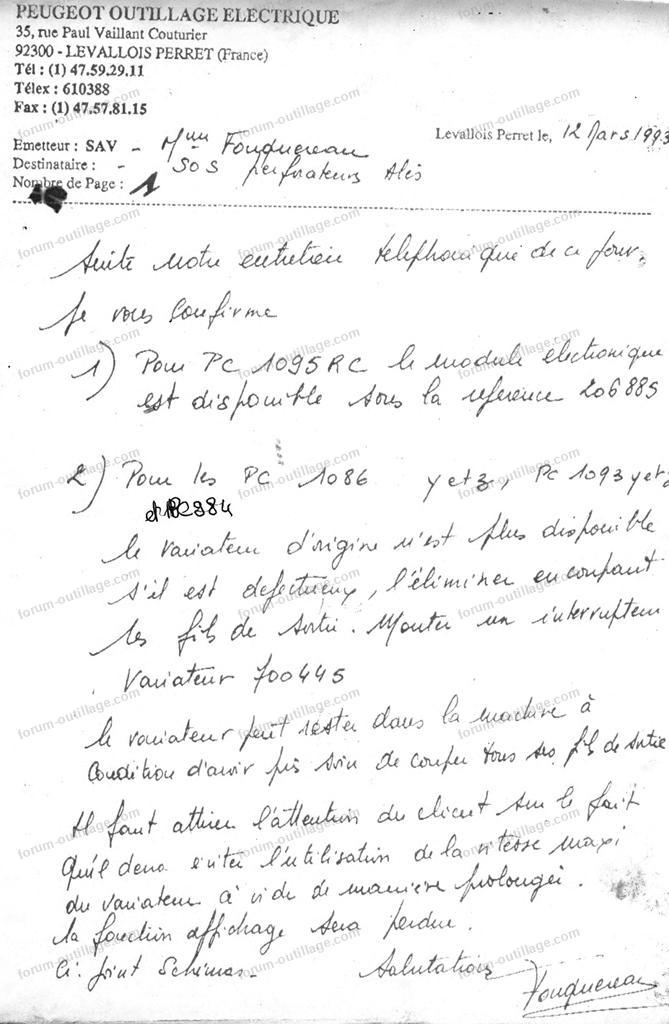 PEUGEOT OUTILLAGE ELECTRIQUE
35, rue Paul Vaillant Couturier
92300 - LEVALLOIS PERRET (France)
Tél : (1) 47.59.29.11
Télex : 610388
Fax : (1) 47.57.81.15
Levallois Perret le, 12 Mars 1993
Emetteur : SAV - Mme Fouquereau
Destinataire : - SOS perforateurs Alès
Nombre de Page : 1
Suite notre entretien telephonique de ce jour,
Je vous confirme
1) Pour PC 1095RC le module electronique
est disponible sous la reference 206885
2) Pour les PC 1086 y et z, PC 1093 y et z
et 984
le variateur d'origine n'est plus disponible
s'il est defectueux, l'éliminer en coupant
les fils de sortie. Monter un interrupteur
Variateur 700445
le variateur peut rester dans la machine à
Condition d'avoir pris soin de couper tous ses fils de sortie
Il faut attirer l'attention du client sur le fait
qu'il devra eviter l'utilisation de la vitesse maxi
du variateur à vide de maniere prolongée.
la fonction affichage sera perdue.
Ci-joint Schémas- Salutations
Fouquereau
forum-outillage.com